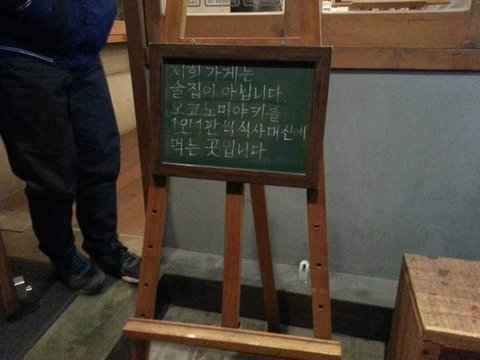 저희 가게는
술집이 아닙니다
오코노미야키를
1인1판씩 식사대신에
먹는 곳입니다.